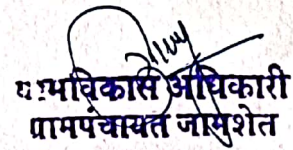 ग्रामविकास अधिकारी
ग्रामपंचायत जामुशेत